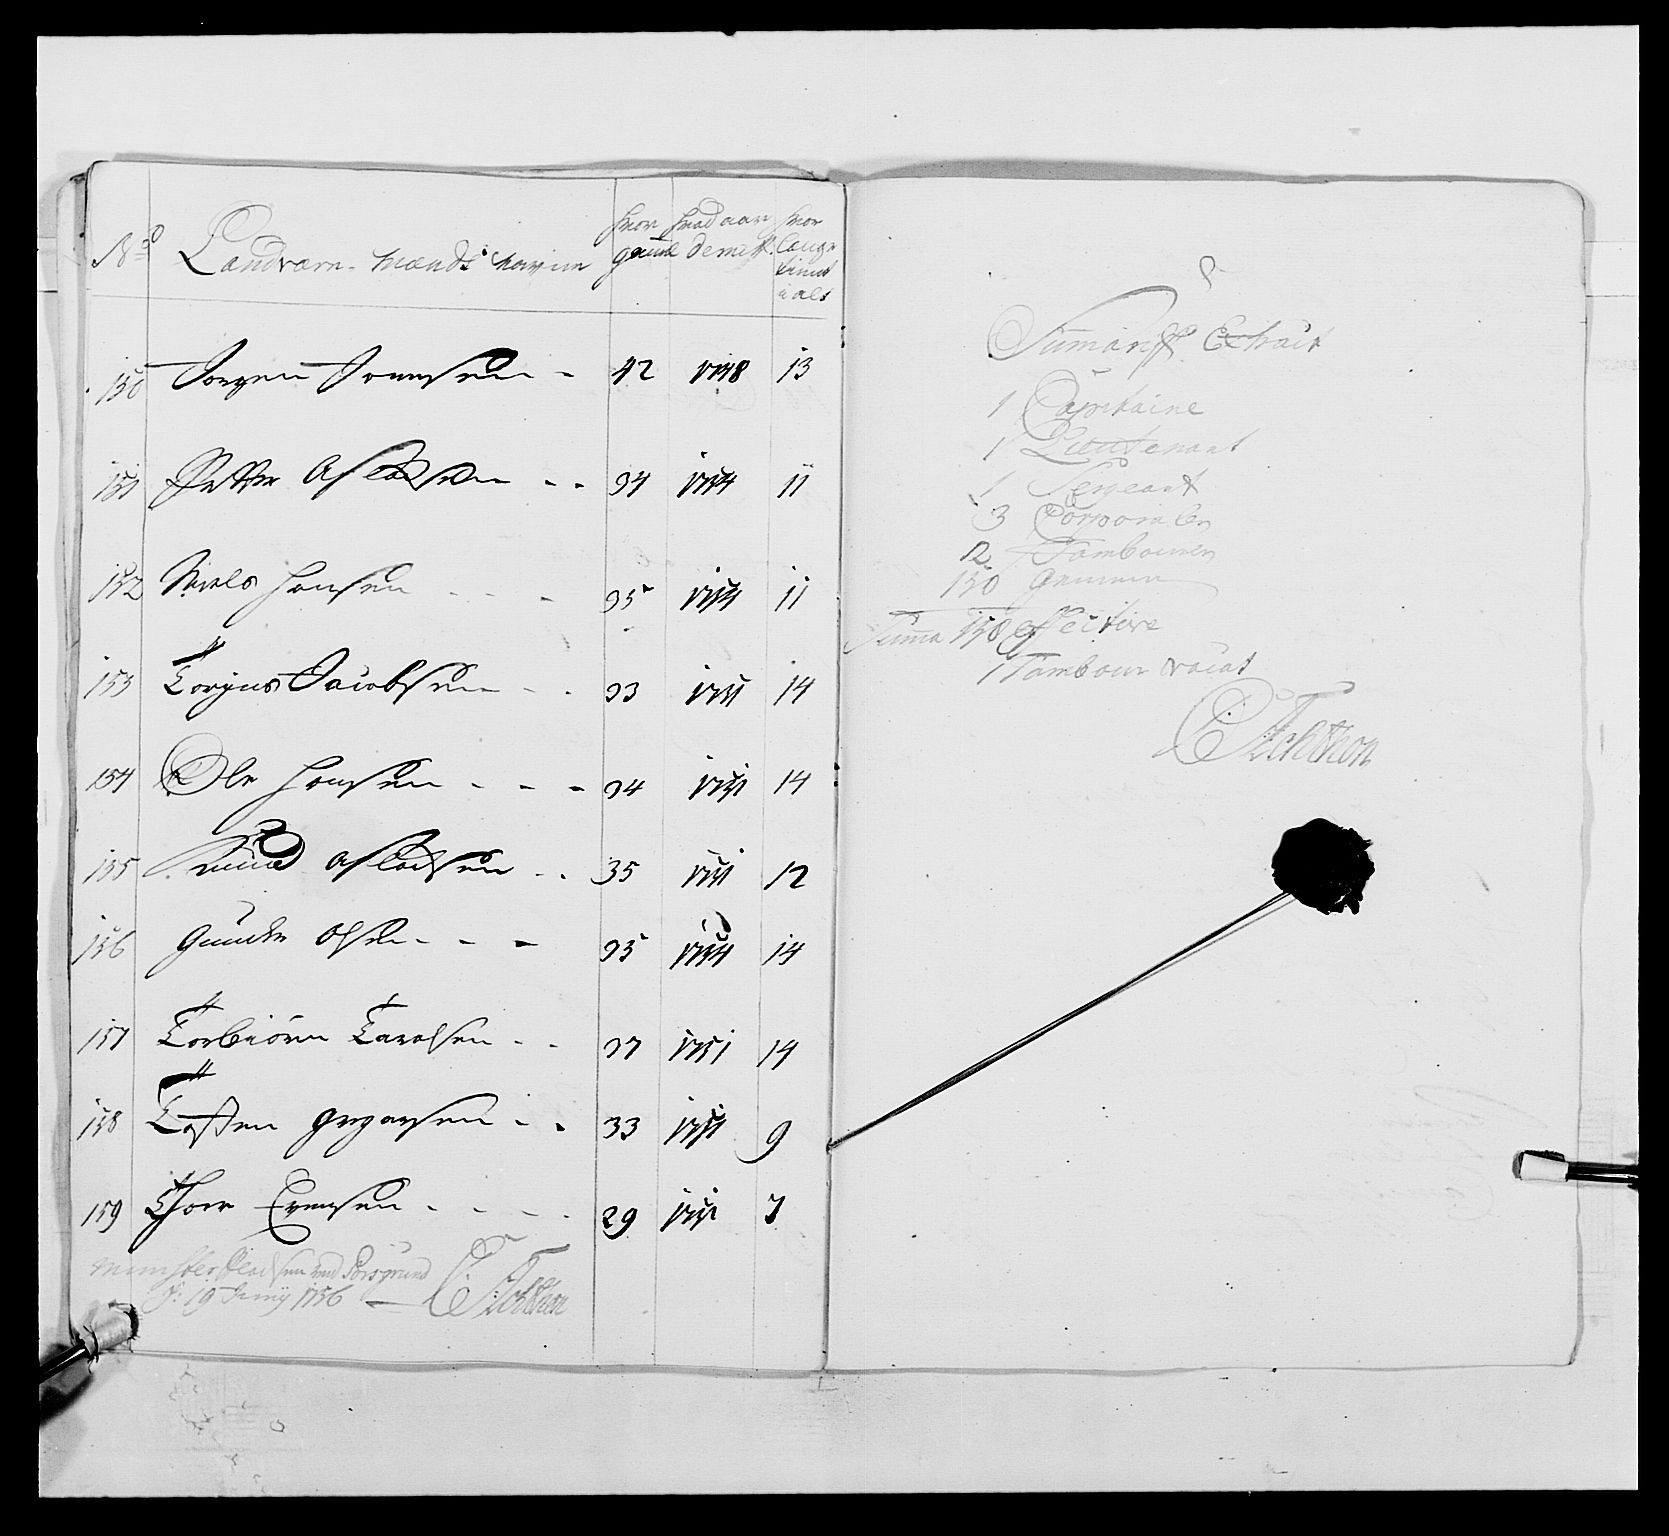 No Landværn-Mænds Navne hvor gaml hvad aar demitt. hvor lange tient i alt
150 Jörgen Svensen - 42 1748 13
151 Petter Aslaksen - - 34 1754 11
152 Niels Hansen - - - 35 1754 11
153 Torgius Jacobsen - - 33 1751 14
154 Ole Hansen - - - 34 1751 14
155 Knud Aslacksen - - 35 1751 12
156 Gunder Olsen - - - 35 1754 14
157 Torbiörn Tarolsen - - 37 1751 14
158 Tosten Gregarsen - - 33 1751 9
159 Thor Evensen - - - - 29 1751 7
Mönster Pladsen ved Porsgrund
d: 19 Junij 1756 —
Sumarisk Extract
1 Capitaine
1 Lieutenant
1 Sergeant
3 Corporaler
2 Tambourer
150 Gemeene
Summa 158 Effective
1 Tambour vacat